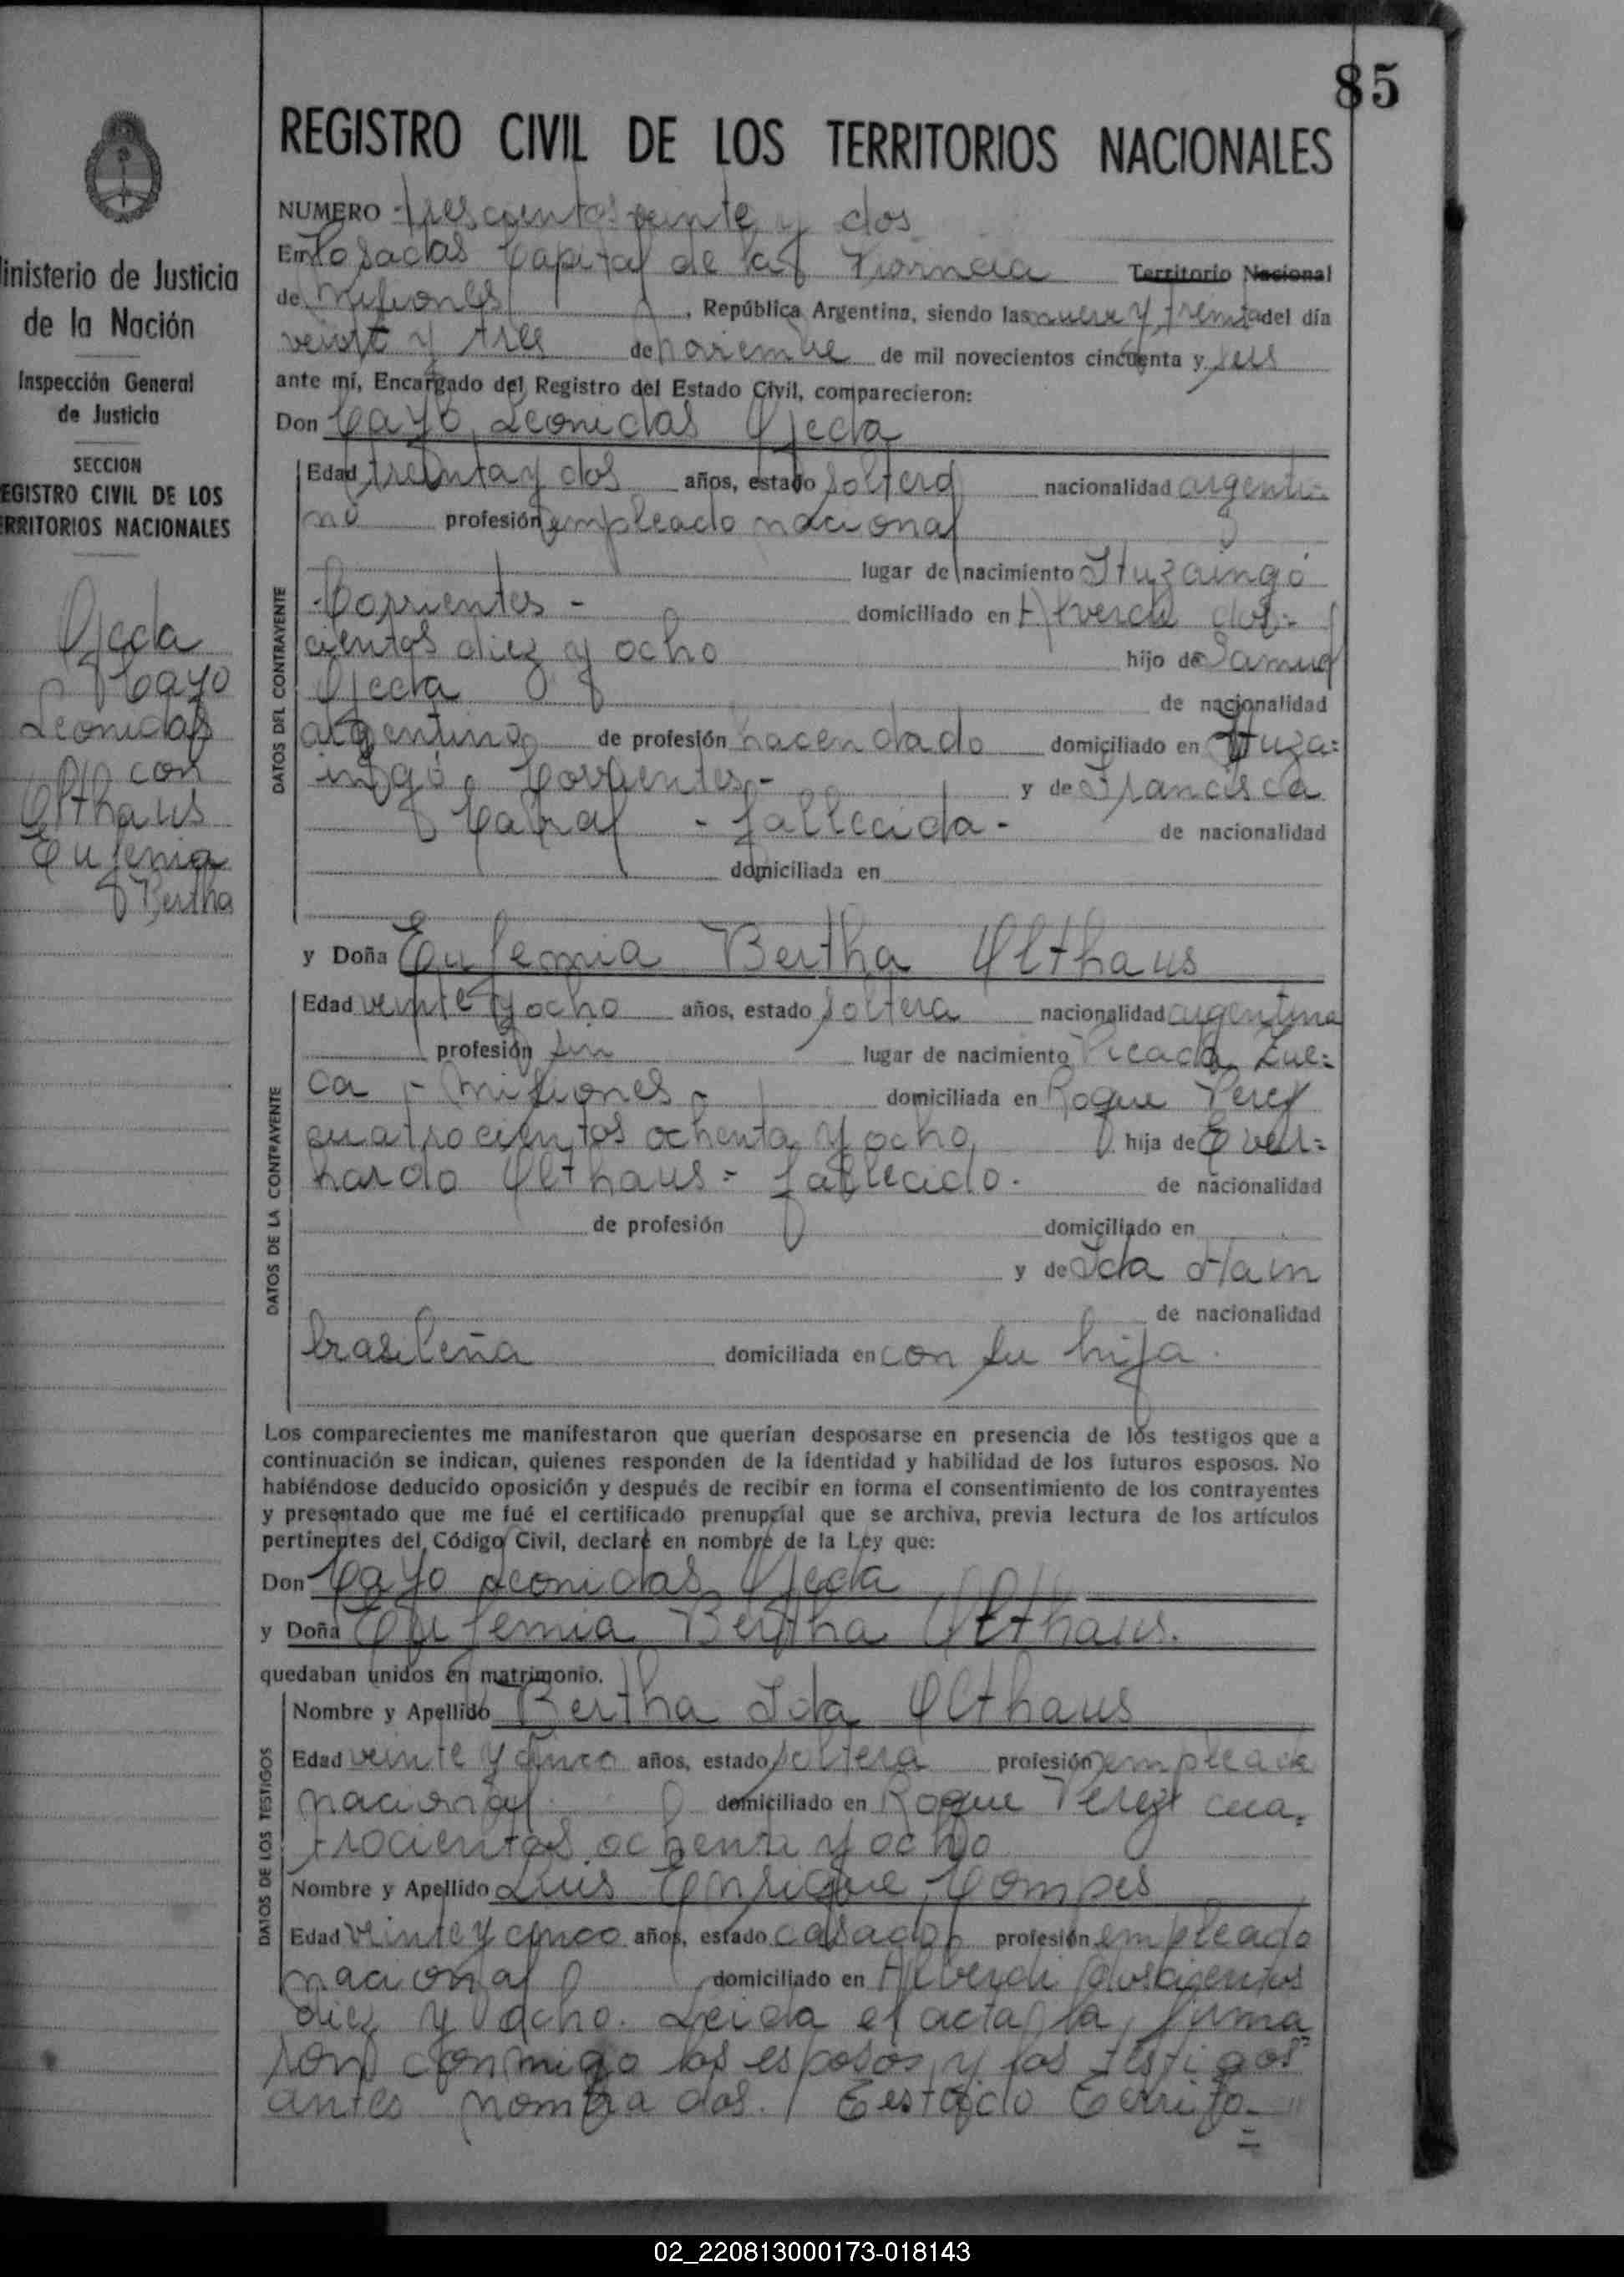 85
REGISTRO CIVIL DE LOS TERRITORIOS NACIONALES
inisterio de Justicia
de la Nación
Inspección General
de Justicia
SECCION
EGISTRO CIVIL DE LOS
RRITORIOS NACIONALES
Ojeda
Cayo
Leonidas
con
Olthaus
Eufemia
Bertha
NUMERO trescientos veinte y dos
En Posadas Capital de la Provincia Territorio Nacional
de Misiones, República Argentina, siendo las nueve y treinta del día
veinte y tres de noviembre de mil novecientos cincuenta y seis
ante mí, Encargado del Registro del Estado Civil, comparecieron:
Don Cayo Leonidas Ojeda
DATOS DEL CONTRAYENTE
Edad treinta y dos años, estado soltero nacionalidad argenti-
no profesión empleado nacional
lugar de nacimiento Ituzaingó
-Corrientes- domiciliado en Alverdi dos-
cientos diez y ocho hijo de Samuel
Ojeda de nacionalidad
argentino de profesión hacendado domiciliado en Ituza=
ingó Corrientes- y de Francisca
Cabral - fallecida- de nacionalidad
domiciliada en
y Doña Eufemia Bertha Olthaus
DATOS DE LA CONTRAYENTE
Edad veinte y ocho años, estado soltera nacionalidad argentina
profesión sin lugar de nacimiento Picada Sue=
ca - Misiones- domiciliada en Roque Perez
cuatrocientos ochenta y ocho hija de Ever=
hardo Olthaus = fallecido. de nacionalidad
de profesión domiciliado en
y de Ida Hain
de nacionalidad
brasileña domiciliada en con su hija.
Los comparecientes me manifestaron que querían desposarse en presencia de los testigos que a
continuación se indican, quienes responden de la identidad y habilidad de los futuros esposos. No
habiéndose deducido oposición y después de recibir en forma el consentimiento de los contrayentes
y presentado que me fué el certificado prenupcial que se archiva, previa lectura de los artículos
pertinentes del Código Civil, declaré en nombre de la Ley que:
Don Cayo Leonidas Ojeda
y Doña Eufemia Bertha Olthaus.
quedaban unidos en matrimonio.
DATOS DE LOS TESTIGOS
Nombre y Apellido Bertha Ida Olthaus
Edad veinte y cinco años, estado soltera profesión empleada
nacional domiciliado en Roque Perez cua=
trocientos ochenta y ocho
Nombre y Apellido Luis Enrique Compes
Edad veinte y cinco años, estado casado profesión empleado
nacional domiciliado en Alverdi doscientos
diez y ocho. Leida el acta, la firma
ron conmigo los esposos y los testigos
antes nombrados. Testado Territo-
02_220813000173-018143